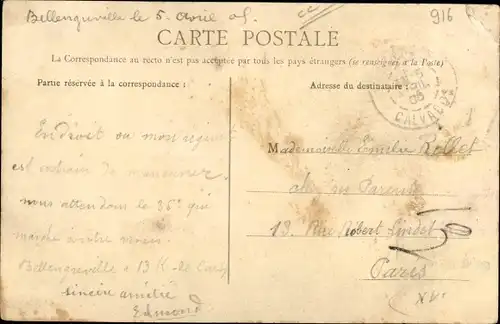 Bellengreville le 5 Avril 05
916
CARTE POSTALE
La Correspondance au recto n'est pas acceptée par tous les pays étrangers (se renseigner à la Poste)
Partie réservée à la correspondance :
Adresse du destinataire :
CALVADOS
Endroit ou mon régiment
est entrain de manœuvrer
nous attendons le 36e qui
marche contre nous.
Bellengreville à 13 K de Caen
Sincère amitié
Edmond
Mademoiselle Emilie Rollet
chez ses Parents
13 Rue Robert Lindet
Paris
XVe